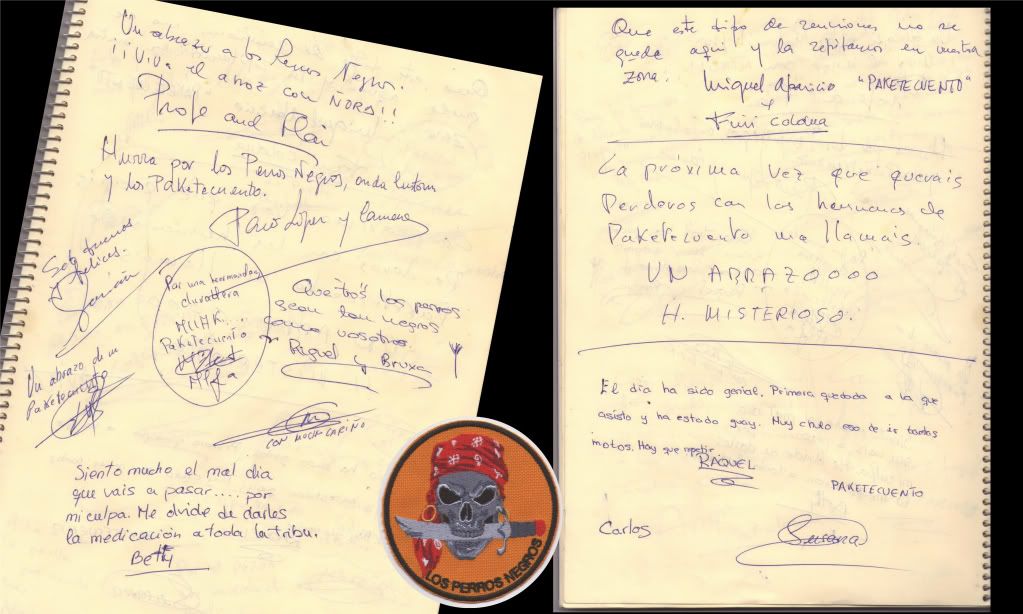 Un abrazo a los Perros Negros.
¡¡Viva el arroz con ÑORA!!
Profe and
Hurra por los Perros Negros, onda lutom
y los Paketecuento.
Paco López y Carmen
Sois buenos
felices.
Por una hermandad
Paketecuento
Que tós los perros
sean tan negros
como vosotros.
Riguel y Bruxa
Un abrazo de un
Paketecuento
CON MUCHO CARIÑO
Siento mucho el mal dia
que vais a pasar.... por
mi culpa. Me olvide de darles
la medicación a toda la tribu.
Betty
LOS PERROS NEGROS
Que este tipo de reuniones no se
quede aqui y la repitamos en nuestra
zona. Miguel Aparicio "PAKETECUENTO"
y
La próxima vez que querais
Perderos con los hermanos de
Paketecuento me llamais.
UN ABRAZOOOO
H. MISTERIOSO.
El día ha sido genial. Primera quedada a la que
asisto y ha estado guay. Muy chulo eso de ir tantas
motos. Hay que repetir.
RAQUEL
PAKETECUENTO
Carlos
Susana